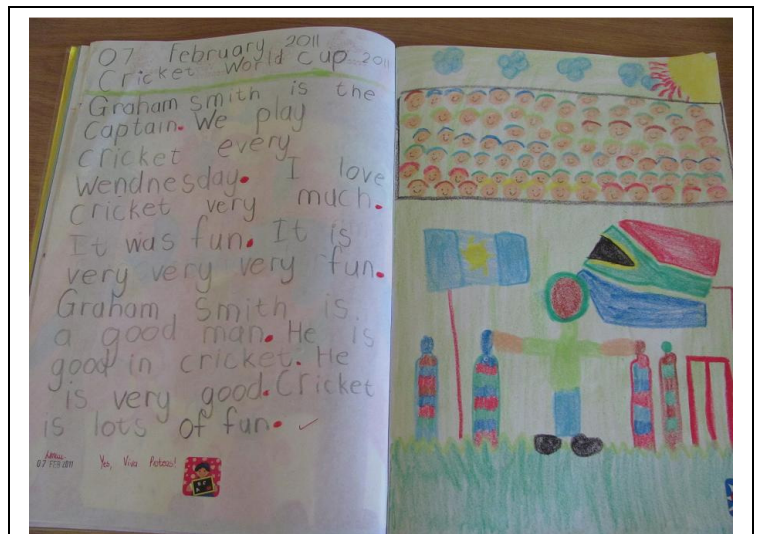 07 February 2011
Cricket World Cup 2011
Graham Smith is the
Captain. We play
cricket every
Wendnesday. I love
cricket very much.
It was fun. It is
very very very fun.
Graham Smith is
a good man. He is
good in cricket. He
is very good. Cricket
is lots of fun.
07 FEB 2011
Yes, Viva Proteas!